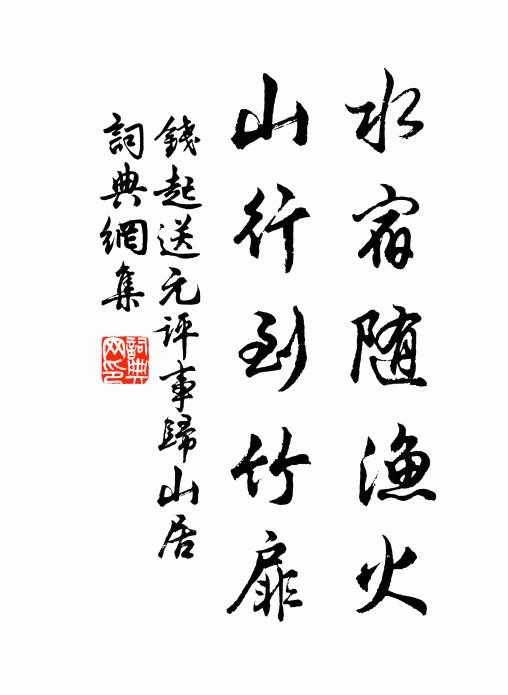 水宿随漁火
山行到竹扉
錢起送元評事歸山居
詞典網集
詞典网印